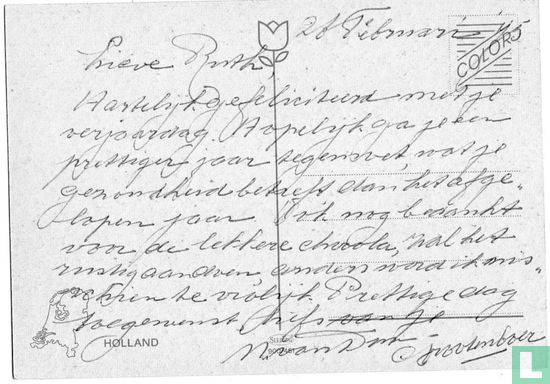 26 Februari '95
COLORS
Lieve Ruth,
Hartelijk gefeliciteerd met je
verjaardag. Hopelijk ga je een
prettiger jaar tegemoet, wat je
gezondheid betreft dan het afge-
lopen jaar. Ook nog bedankt
voor de lekkere chocola, zal het
rustig aan doen, anders word ik mis-
schien te vrolijk. Prettige dag
toegewenst, liefs van je
HOLLAND
catawiki